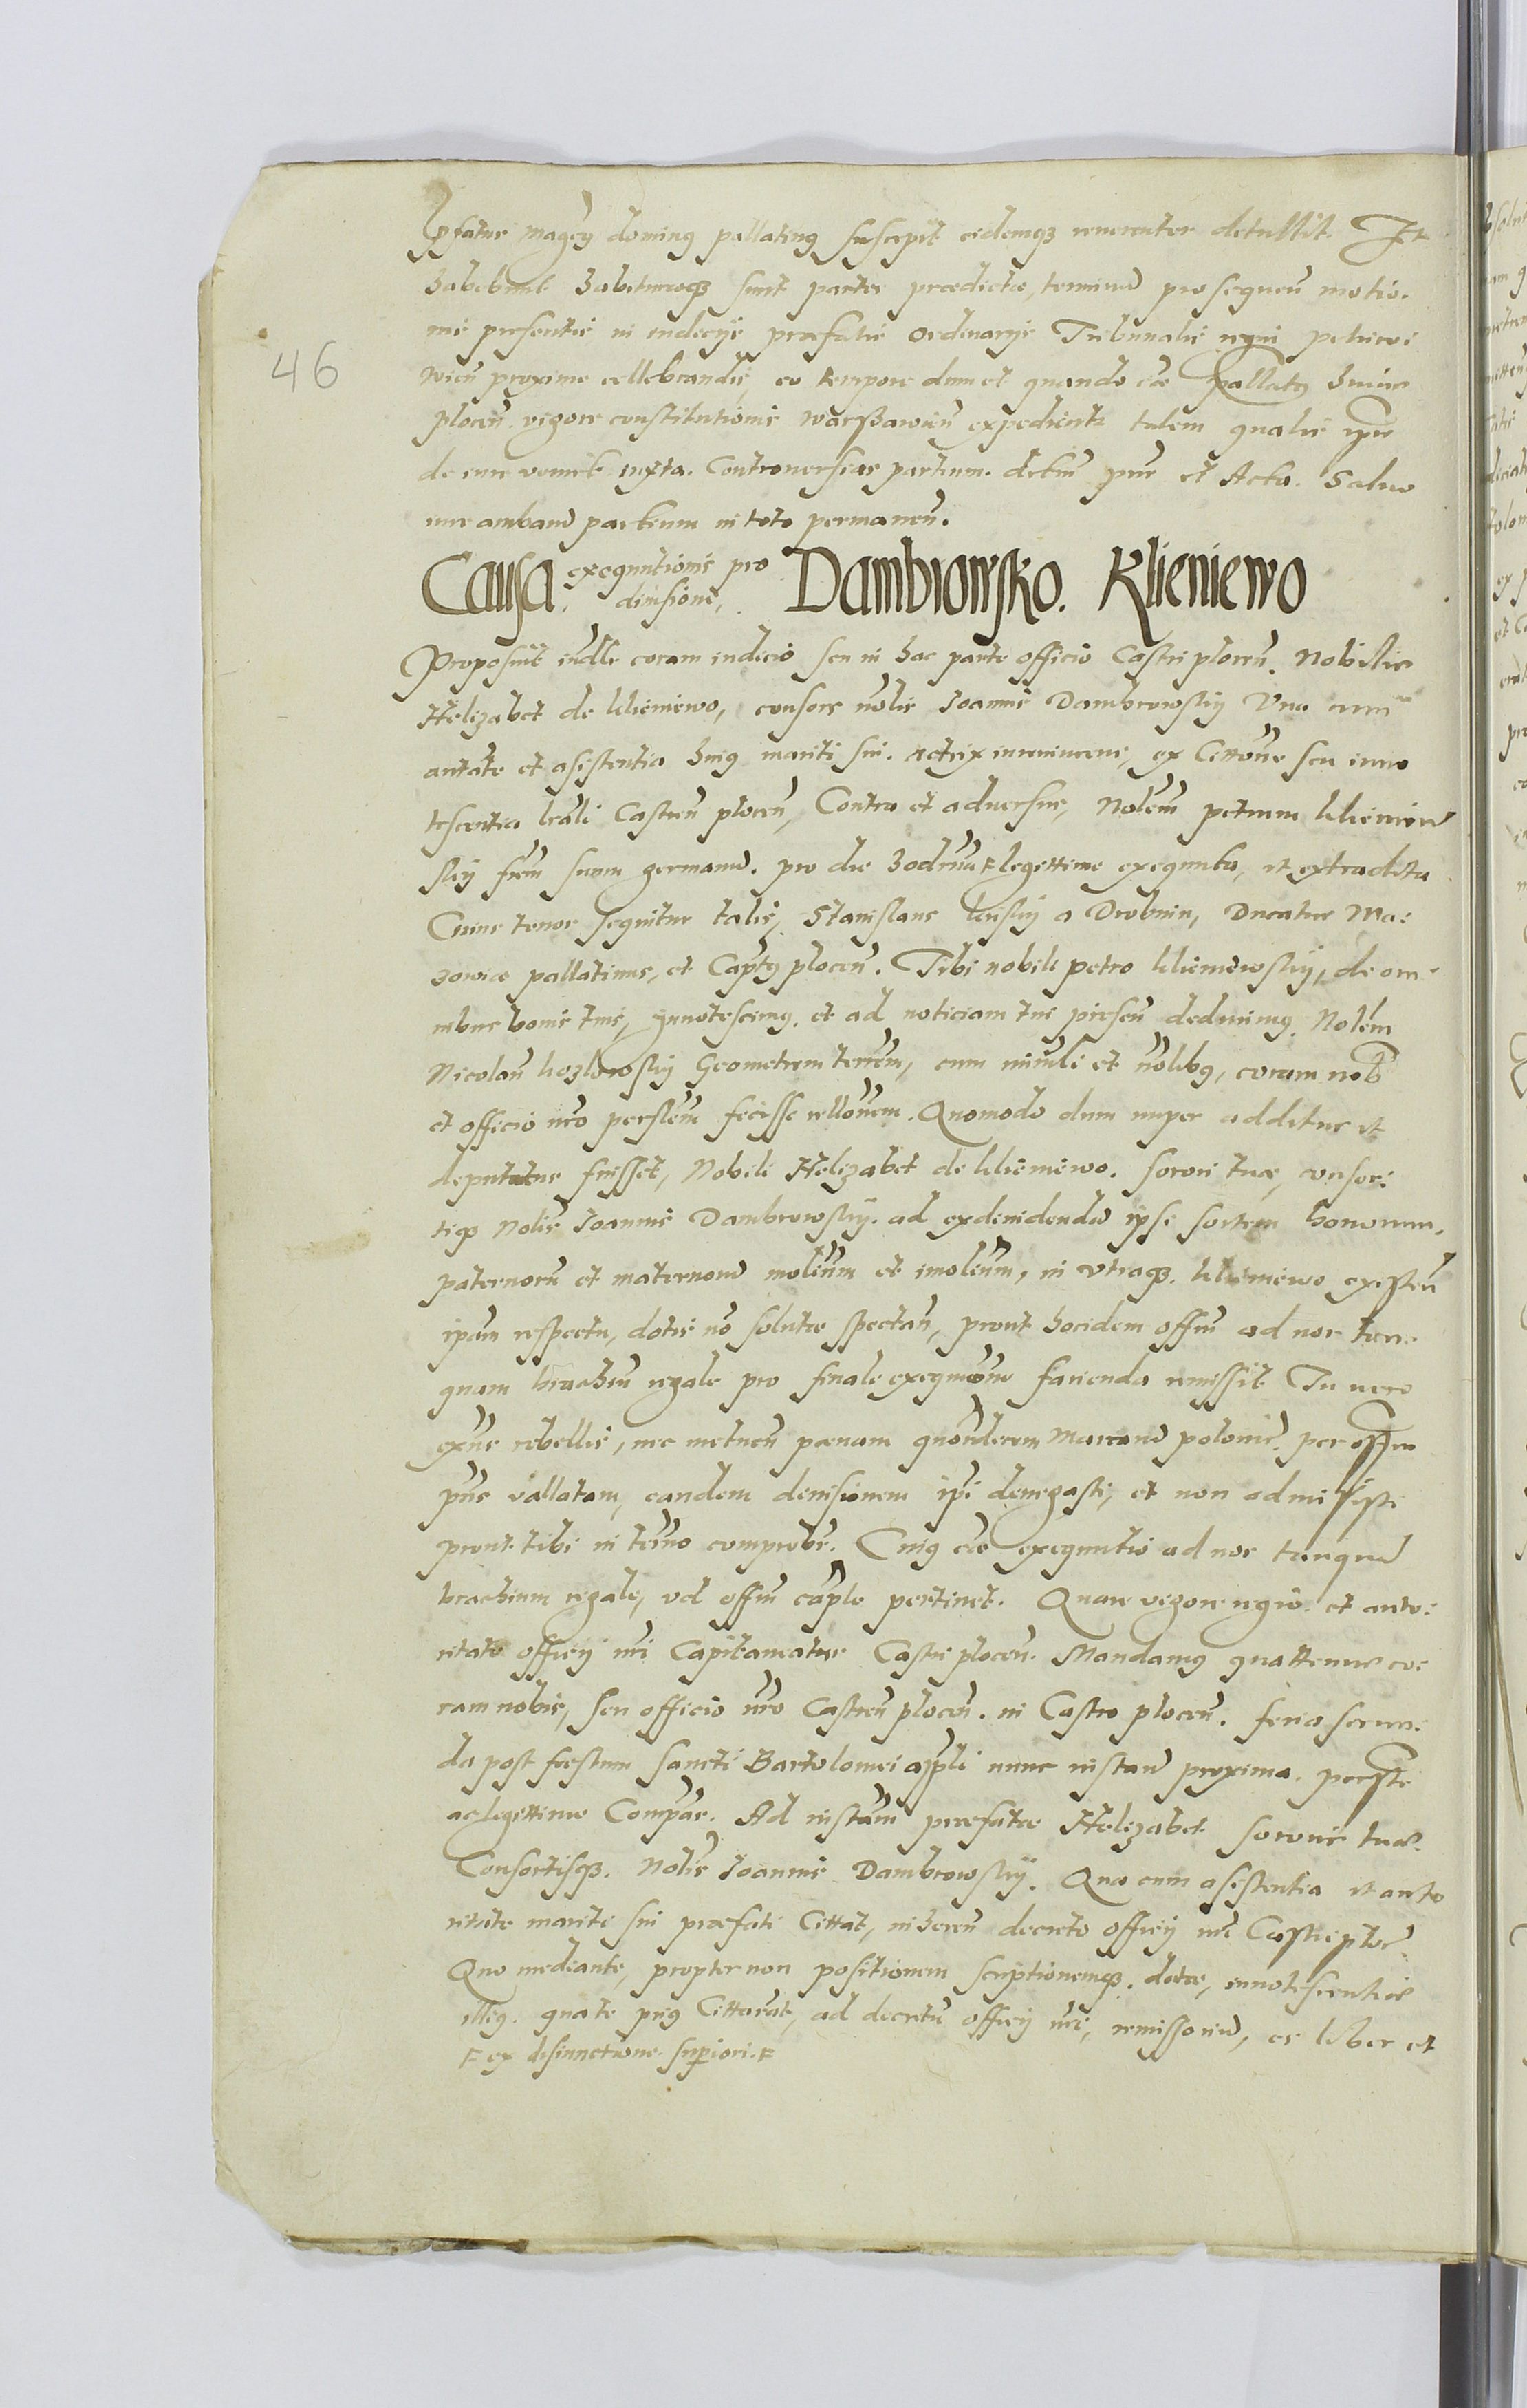 Pfatus Magcus dominus pallatinus suscepit eidemq3 reuerenter detullit. Et
habebunt habituraeq3 sunt partes praedictae, terminu prosequen motio-
nis presentis in indicijs praefatis ordinarijs Tribunalis regni petrico-
vien proxime cellebrandis, eo tempore dum et quando cae Pallatus huius
plocen. vigore constitutionis Warszawien expedientr talem qualis ipse
de iure venerit iuxta. Controuersias partium. dictum pns et Acta. Saluo
iure ambaru partium in toto permanen.
Causa exequutionis pro diuisione, Dambrowsko. Klieniewo
46
Proposuit indlr coram iudicio seu in hac parte officio Castri plocen. Nobilis
Helizabet de klieniewo, consors nolis Joannis Dambrowskij Una cum
autate et asistentia huius mariti sui. actrix inueniens, ex Cittone seu inno
tescentia lrali Castren plocen, Contra et aduersus, Nolem petrum klieniew
skij frem suum germanu. pro die hodierna F legettime exequuta, et extradita
Cuius tenor sequitur talis, Stanislaus kriskij a Drobnin, Ducatus Ma-
zowiae pallatinus, et Captus plocen. Tibi nobili petro klieniewskij, de om-
nibus bonis tuis, Innotescimus. et ad noticiam tui presen deducimus. Nolem
Nicolaum kozlowskij Geometram terrem, cum minrli et nolibus, coram nob
et officio nro perslem fecisse rellonem. Quomodo dum nuper additus et
deputatus fuisset, Nobili Helizabet de klieniewo. sorori tuae, consor-
tiq3 Nolis Joannis Dambrowskij. ad exdeuidendu ipsi sortem bonorum.
paternoru et maternoru molium et imolium, in utraq3. klieniewo existen
ipam respectu, dotis no solutae spectan, prout hocidem offm ad nos tan-
quam brachiu regale pro finale exequtione facienda remissit Tu vero
exns rebellis, nec metuen paenam quondecem Marcaru polonic. per offm
pns vallatam, eandem deuisionem ipi denegasti, et non admisisti
prout tibi in termo comprobr. Cuius cae exequutio ad nos tanqua
brachium regale, vel offm caple pertinet. Quare vigore regio. et auto-
ritate officij nri Capitaneatus Castri plocen. Mandamus quattenus co-
ram nobis, seu officio nro Castren plocen. in Castro plocen. feria secun-
da post festum Sancti Bartolomei apli nunc instan proxima. perste
ac legettime Compas. Ad instam praefatae Helizabet sororis tuae.
Consortisq3. Nolis Joannis Dambrowskij. Qua cum asistentia et auto
ritate mariti sui praefati Cittat, inheren decreto officij nri Castri ploc
Quo mediante, propter non positionem scriptionemq3. datae, innotescentiae
illius. qua te prius Cittarat, ad decretu officij nri, remissoriu, es liber et
F ex disiunctione superiori. F